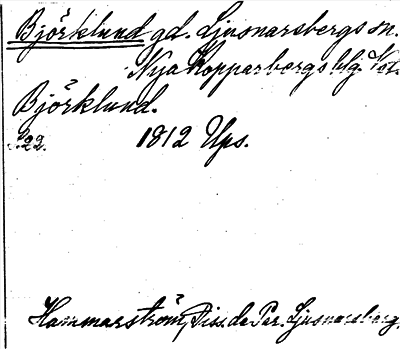 Björklund gd. Ljusnarsbergs sn.
Nya Kopparbergs blg. Vst.
Björklund.
s. 22. 1812 Ups.
Hammarström, Diss. de Par. Ljusnarsberg.